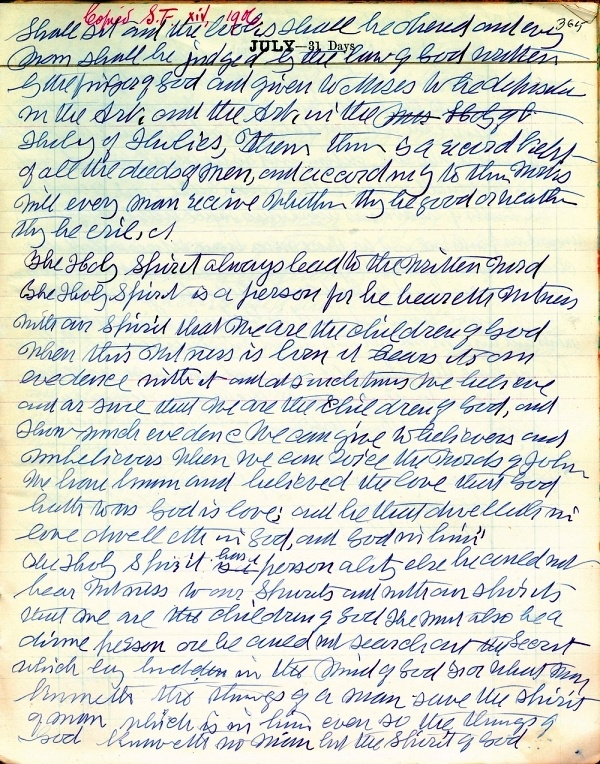 Copied S.T. xiv, 1906 365
shall sit and the books shall be opened and every
JULY—31 Days
man shall be judged by the law of God written
by the finger of God and given to Moses to be deposited
in the Ark, and the Ark in the
Holy of Holies, There is a record kept
of all the deeds of men, and according to their works
will every man receive whether they be good or whether
they be evil,
The Holy Spirit always leads to the written word
The Holy Spirit is a person for he beareth witness
with our spirit that we are the children of God
When this witness is born it bears its own
evidence with it and at such times we believe
and are sure that we are the children of God, and
How much evidence we can give to believers and
unbelievers when we can voice the words of John
We have known and believed the love that God
hath to us God is love; and he that dwelleth in
love dwelleth in God, and God in him;
The Holy Spirit has a personality else he could not
bear witness to our spirits and with our spirits
that we are the children of God He must also be a
divine person or he could not search out the secrets
which lay hidden in the mind of God For what man
knoweth the things of a man save the spirit
of man which is in him even so the things of
God knoweth no man but the Spirit of God